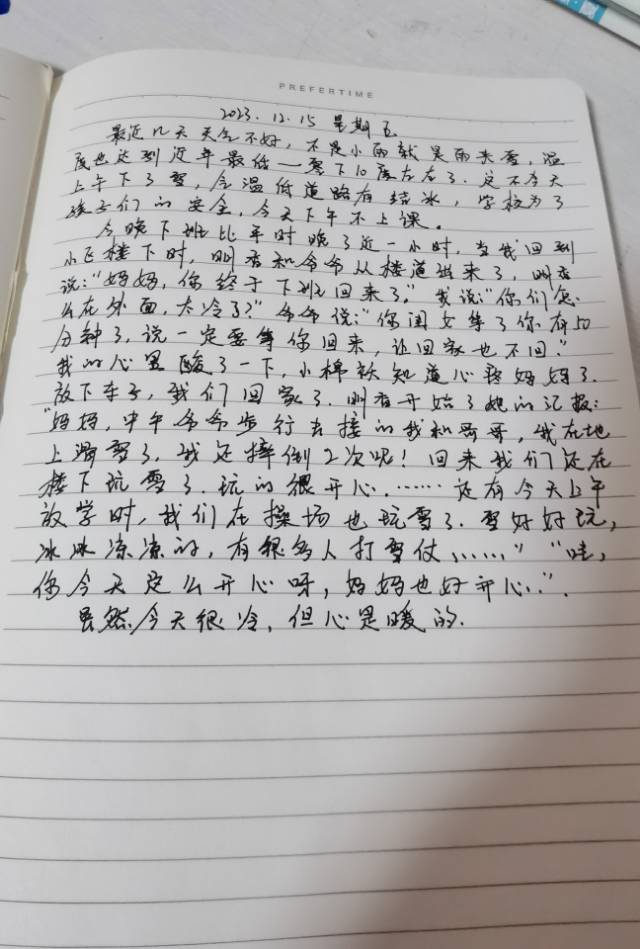 PREFERTIME
2023.12.15 星期五
最近几天天气不好,不是小雨就是雨夹雪,温
度也达到近年最低一零下10度左右了.这不今天
上午下了雪,气温低道路有结冰,学校为了
孩子们的安全,今天下午不上课.
今晚下班比平时晚了近一小时,当我回到
小区楼下时,玥杏和爷爷从楼道出来了,玥杏
说:"妈妈,你终于下班回来了."我说:"你们怎
么在外面,太冷了?"爷爷说:"你闺女等了你有50
分钟了,说一定要等你回来,让回家也不回."
我的心里酸了一下,小棉袄知道心疼妈妈了.
放下车子,我们回家了.玥杏开始了她的汇报:
"妈妈,中午爷爷步行去接的我和哥哥,我在地
上滑雪了,我还摔倒2次呢!回来我们还在
楼下玩雪了.玩的很开心.……还有今天上午
放学时,我们在操场也玩雪了.雪好好玩,
冰冰凉凉的,有很多人打雪仗……""哇,
你今天这么开心呀,妈妈也好开心.".
虽然今天很冷,但心是暖的.